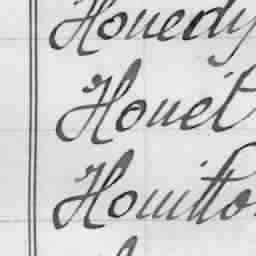 Houerly
Houet
Houitto